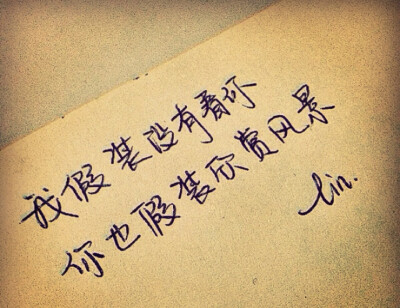 我假装没有看你
你也假装欣赏风景
lin.